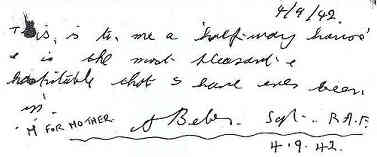 4/9/42.
This, is to, me a 'half-way house'
& is the most pleasant &
hospitable that I have ever been
in.
"M FOR MOTHER. A Beber Sgt.. R.A.F.
4.9.42.